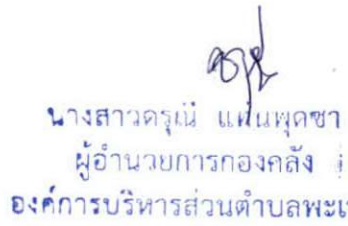 นางสาวดรุณี แผ่นพุดซา
ผู้อำนวยการกองคลัง
องค์การบริหารส่วนตำบลพะเ